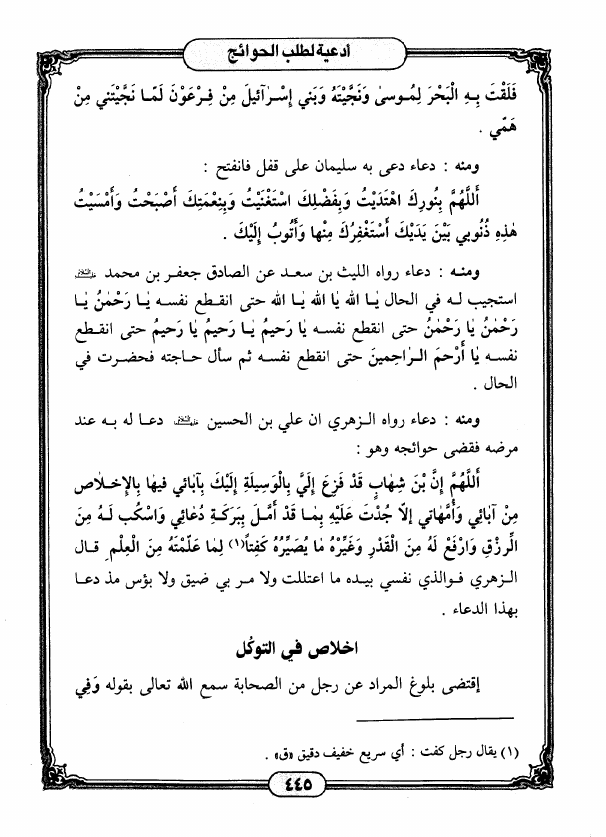 أدعية لطلب الحوائج
فَلَقْتَ بِهِ الْبَحْرَ لِمُوسىٰ وَنَجَّيْتَهُ وَبَني إسْرآئيلَ مِنْ فِرعَوْنَ لَمّا نَجَّيْتَني مِنْ
هَمّي .
ومنه : دعاء دعى به سليمان على قفل فانفتح :
أَللَّهُمَّ بِنُورِكَ اهْتَدَيْتُ وَبِفَضْلِكَ اسْتَغْنَيْتُ وَبِنِعْمَتِكَ أَصْبَحْتُ وَأَمْسَيْتُ
هٰذِهِ ذُنُوبي بَيْنَ يَدَيْكَ أَسْتَغْفِرُكَ مِنْها وَأَتُوبُ إلَيْكَ .
ومنـه : دعاء رواه الليث بن سعد عن الصادق جعفر بن محمد
استجيب لـه في الحال يٰـا الله يٰا الله يٰـا الله حتى انقطع نفسـه يٰـا رَحْمٰنُ يٰـا
رَحْمٰنُ يٰا رَحْمٰنُ حتى انقطع نفسـه يٰا رَحيمُ يٰـا رَحيمُ يٰا رَحيمُ حتى انقـطع
نفسـه يٰا أَرْحَمَ الـراحِمينَ حتى انقطع نفسـه ثم سأل حـاجته فحضـرت في
الحال .
ومنه : دعاء رواه الـزهري ان علي بن الحسين دعـا له بـه عند
مرضه فقضى حوائجه وهو :
أَللَّهُمَّ إنَّ بْنَ شِهابٍ قَدْ فَزِعَ إلَيَّ بِالْوَسيلَةِ إلَيْكَ بِآبائي فيها بِالإخْلاصِ
مِنْ آبائي وَأُمَّهاتي إلاّ جُدْتَ عَلَيْهِ بِمـا قَدْ أَمَّـلَ بِبَرَكَـةِ دُعائي وَاسْكُب لَـهُ مِنَ
الِّرزْقِ وَارْفَعْ لَهُ مِنَ الْقَدْرِ وَغَيْرَهُ مٰا يُصَيِّرُهُ كَفِتاً(١) لِما عَلَّمْتَهُ مِنَ الْعِلْمِ قـال
الـزهري فـوالذي نفسي بيـده ما اعتللت ولا مـر بي ضيق ولا بؤس مذ دعـا
بهذا الدعاء .
اخلاص في التوكل
إقتضى بلوغ المراد عن رجل من الصحابة سمع الله تعالى بقوله وَفي
(١) يقال رجل كفت : أي سريع خفيف دقيق «ق» .
٤٤٥